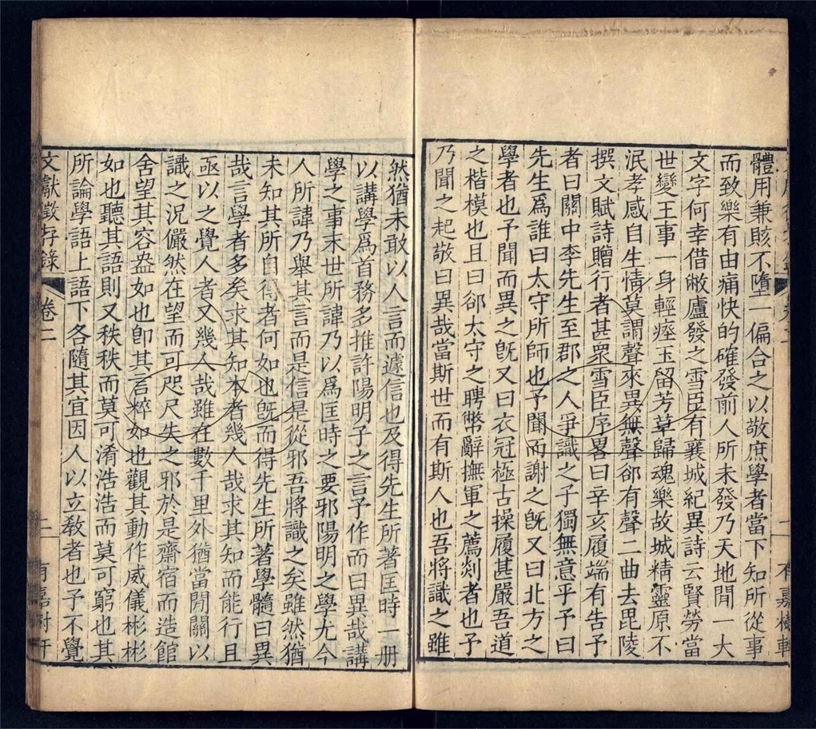 體用兼賅不墮一偏合之以敬庶學者當下知所從事
而致樂有由痛快的確發前人所未發乃天地間一大
文字何幸借敝廬發之雪臣有襄城紀異詩云賢勞當
世變王事一身輕瘞玉留芳草歸魂樂故城精靈原不
泯孝感自生情莫謂聲來異無聲郤有聲二曲去毘陵
撰文賦詩贈行者甚眾雪臣序畧曰辛亥履端有告予
者曰關中李先生至郡之人爭識之子獨無意乎予曰
先生爲誰曰太守所師也予聞而謝之旣又曰北方之
學者也予聞而異之旣又曰衣冠極古操履甚嚴吾道
之楷模也且曰郤太守之聘幣辭撫軍之薦剡者也予
乃聞之起敬曰異哉當斯世而有斯人也吾將識之雖
然猶未敢以人言而遽信也及得先生所著匡時一册
以講學爲首務多推許陽明子之言予作而曰異哉講
學之事末世所諱乃以爲匡時之要邪陽明之學尤今
人所諱乃舉其言而是信是從邪吾將識之矣雖然猶
未知其所自得者何如也旣而得先生所著學髓曰異
哉言學者多矣求其知本者幾人哉求其知而能行且
亟以之覺人者又幾人哉雖在數千里外猶當閉關以
識之況儼然在望而可咫尺失之邪於是齋宿而造館
舍望其容盎如也卽其言粹如也觀其動作威儀彬彬
如也聽其語則又秩秩而莫可淆浩浩而莫可窮也其
所論學語上語下各隨其宜因人以立敎者也予不覺
文獻徵存錄 卷二 二 有嘉樹軒